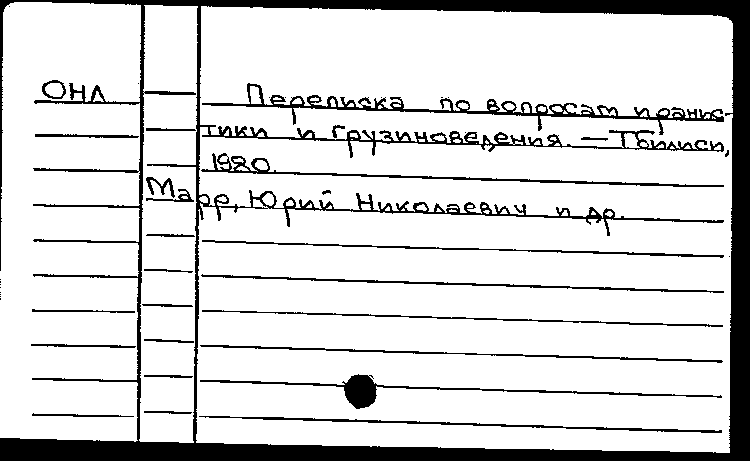 ОНЛ Переписка по вопросам иранис-
тики и грузиноведения. — Тбилиси,
1980.
Марр, Юрий Николаевич и др.